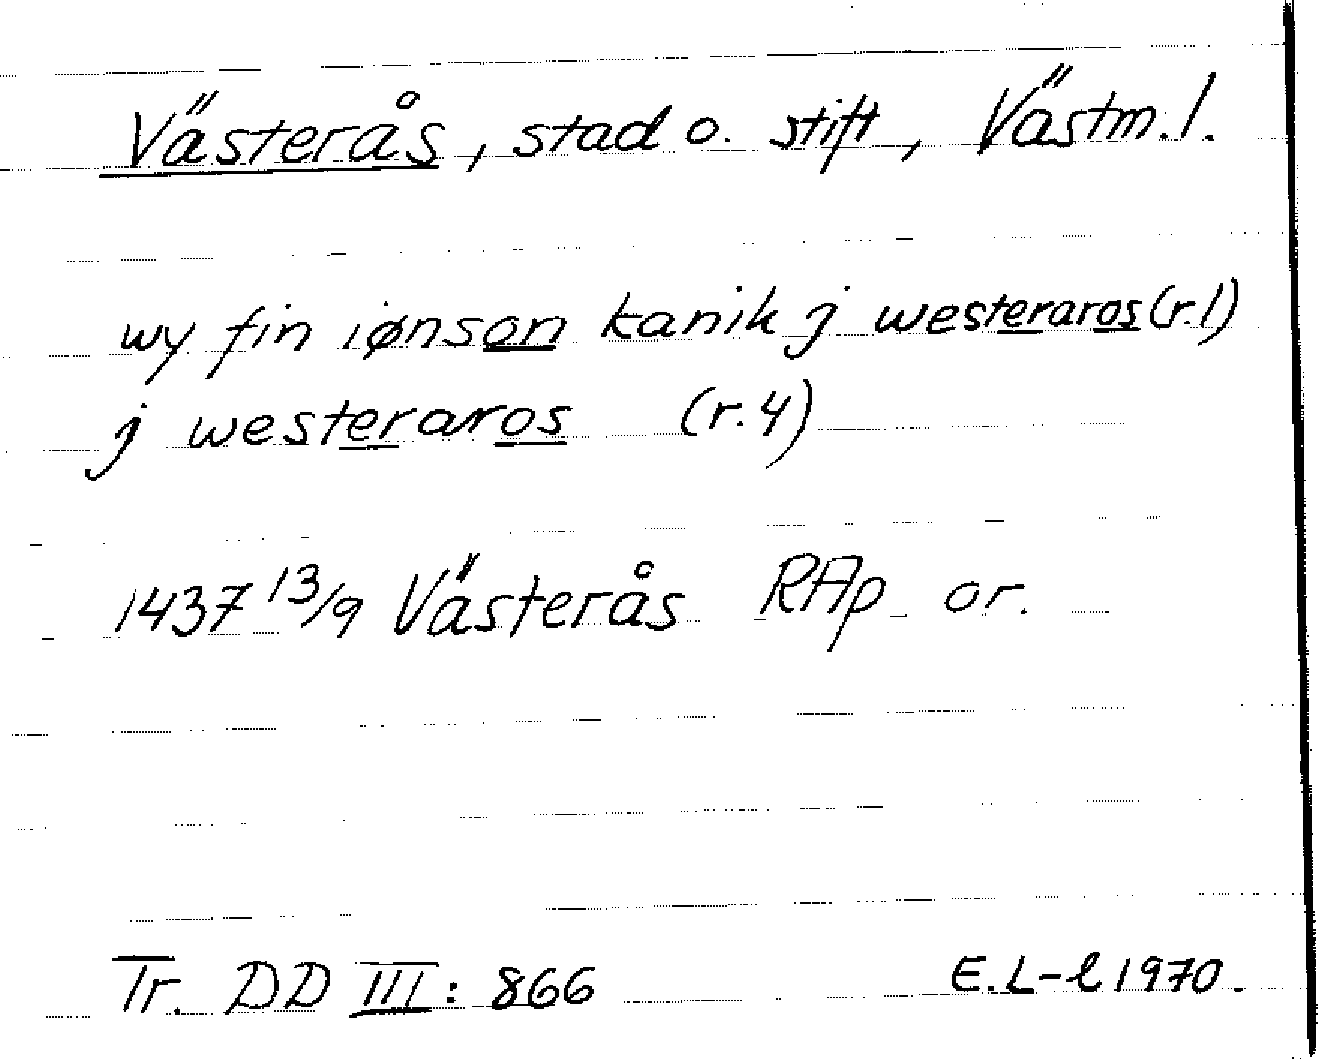 Västerås, stad o. stift, Västm.l.
wy fin iønson kanik j westeraros (r.1)
j westeraros (r.4)
1437 13/9 Västerås RAp or.
Tr. DD III: 866 E.L-l 1970.